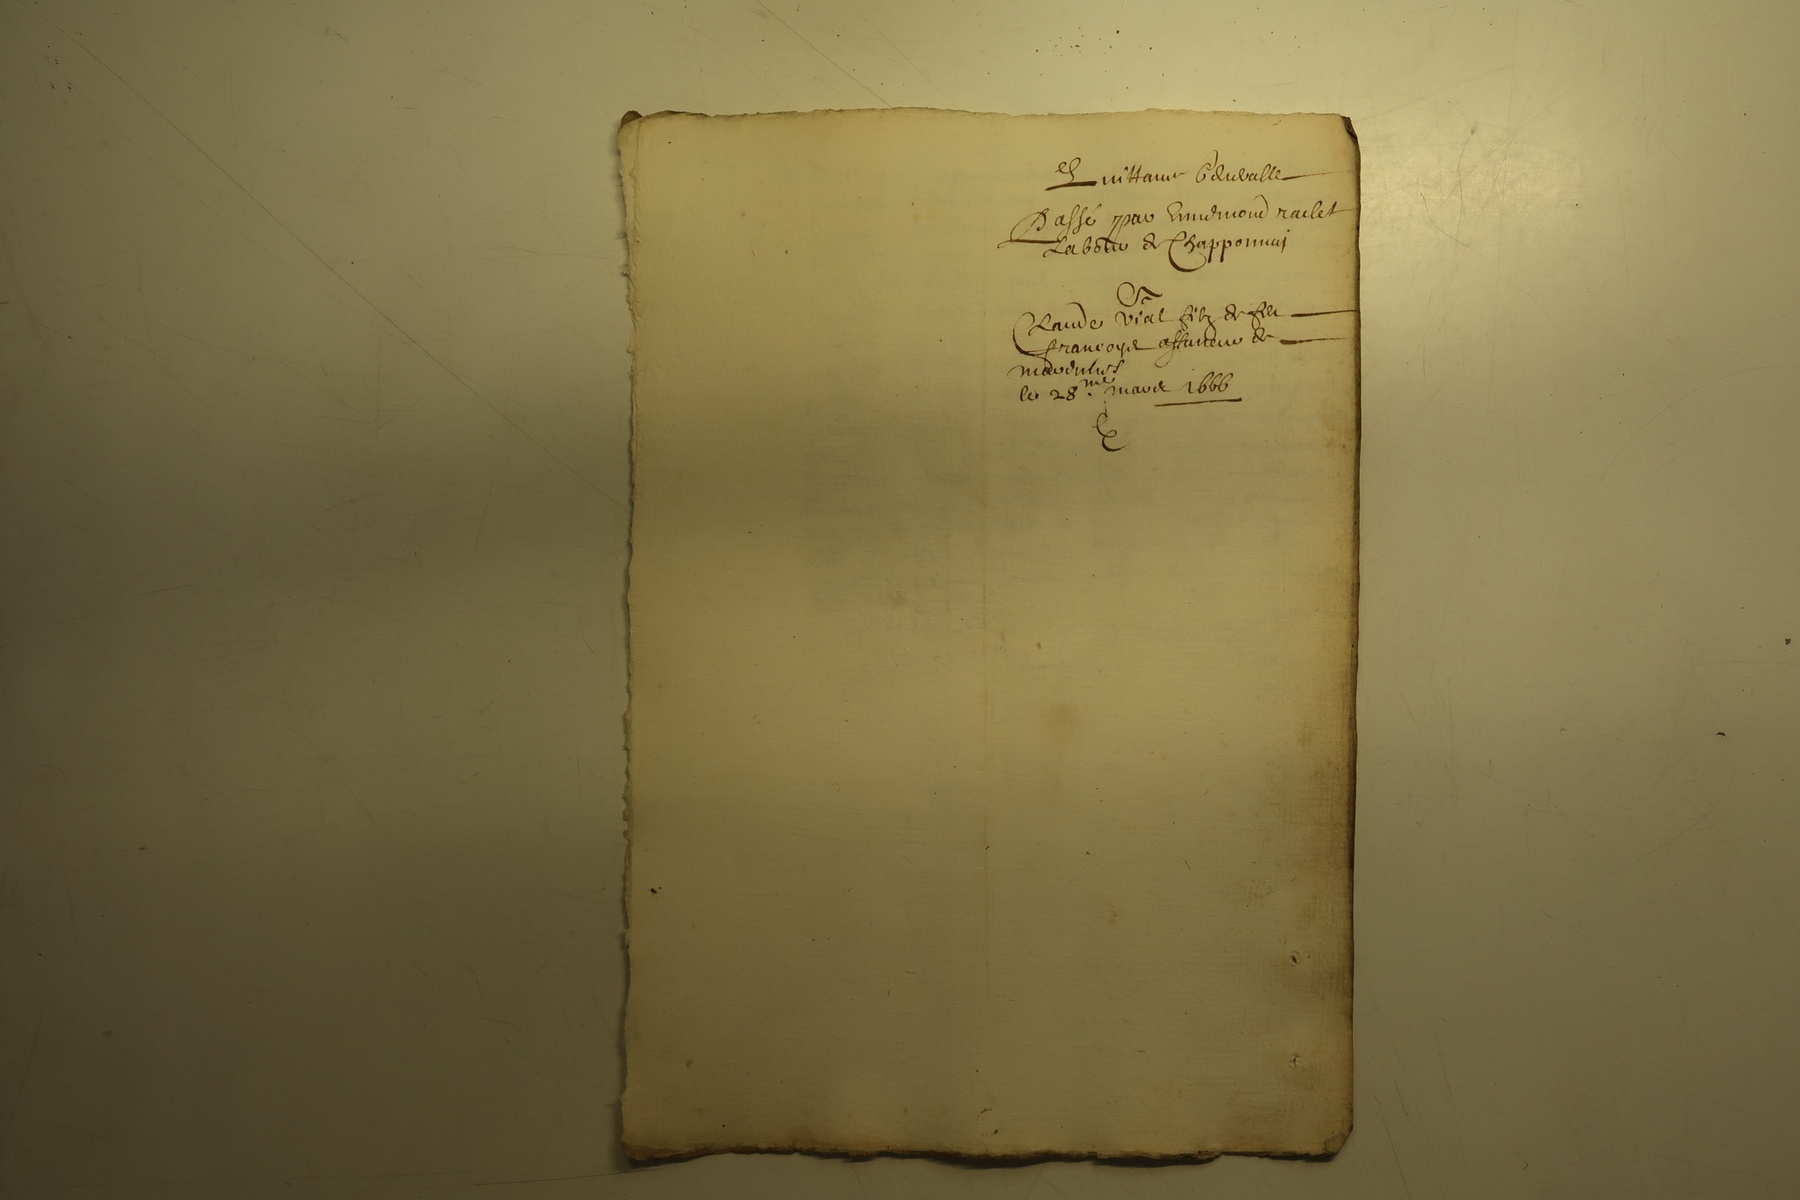 Quittance Generalle
Passé par Ennemond raclet
Labour de Chapponnaj
A
Claude vial filz de feu
francoys affaneur de
le 28.me mars 1666